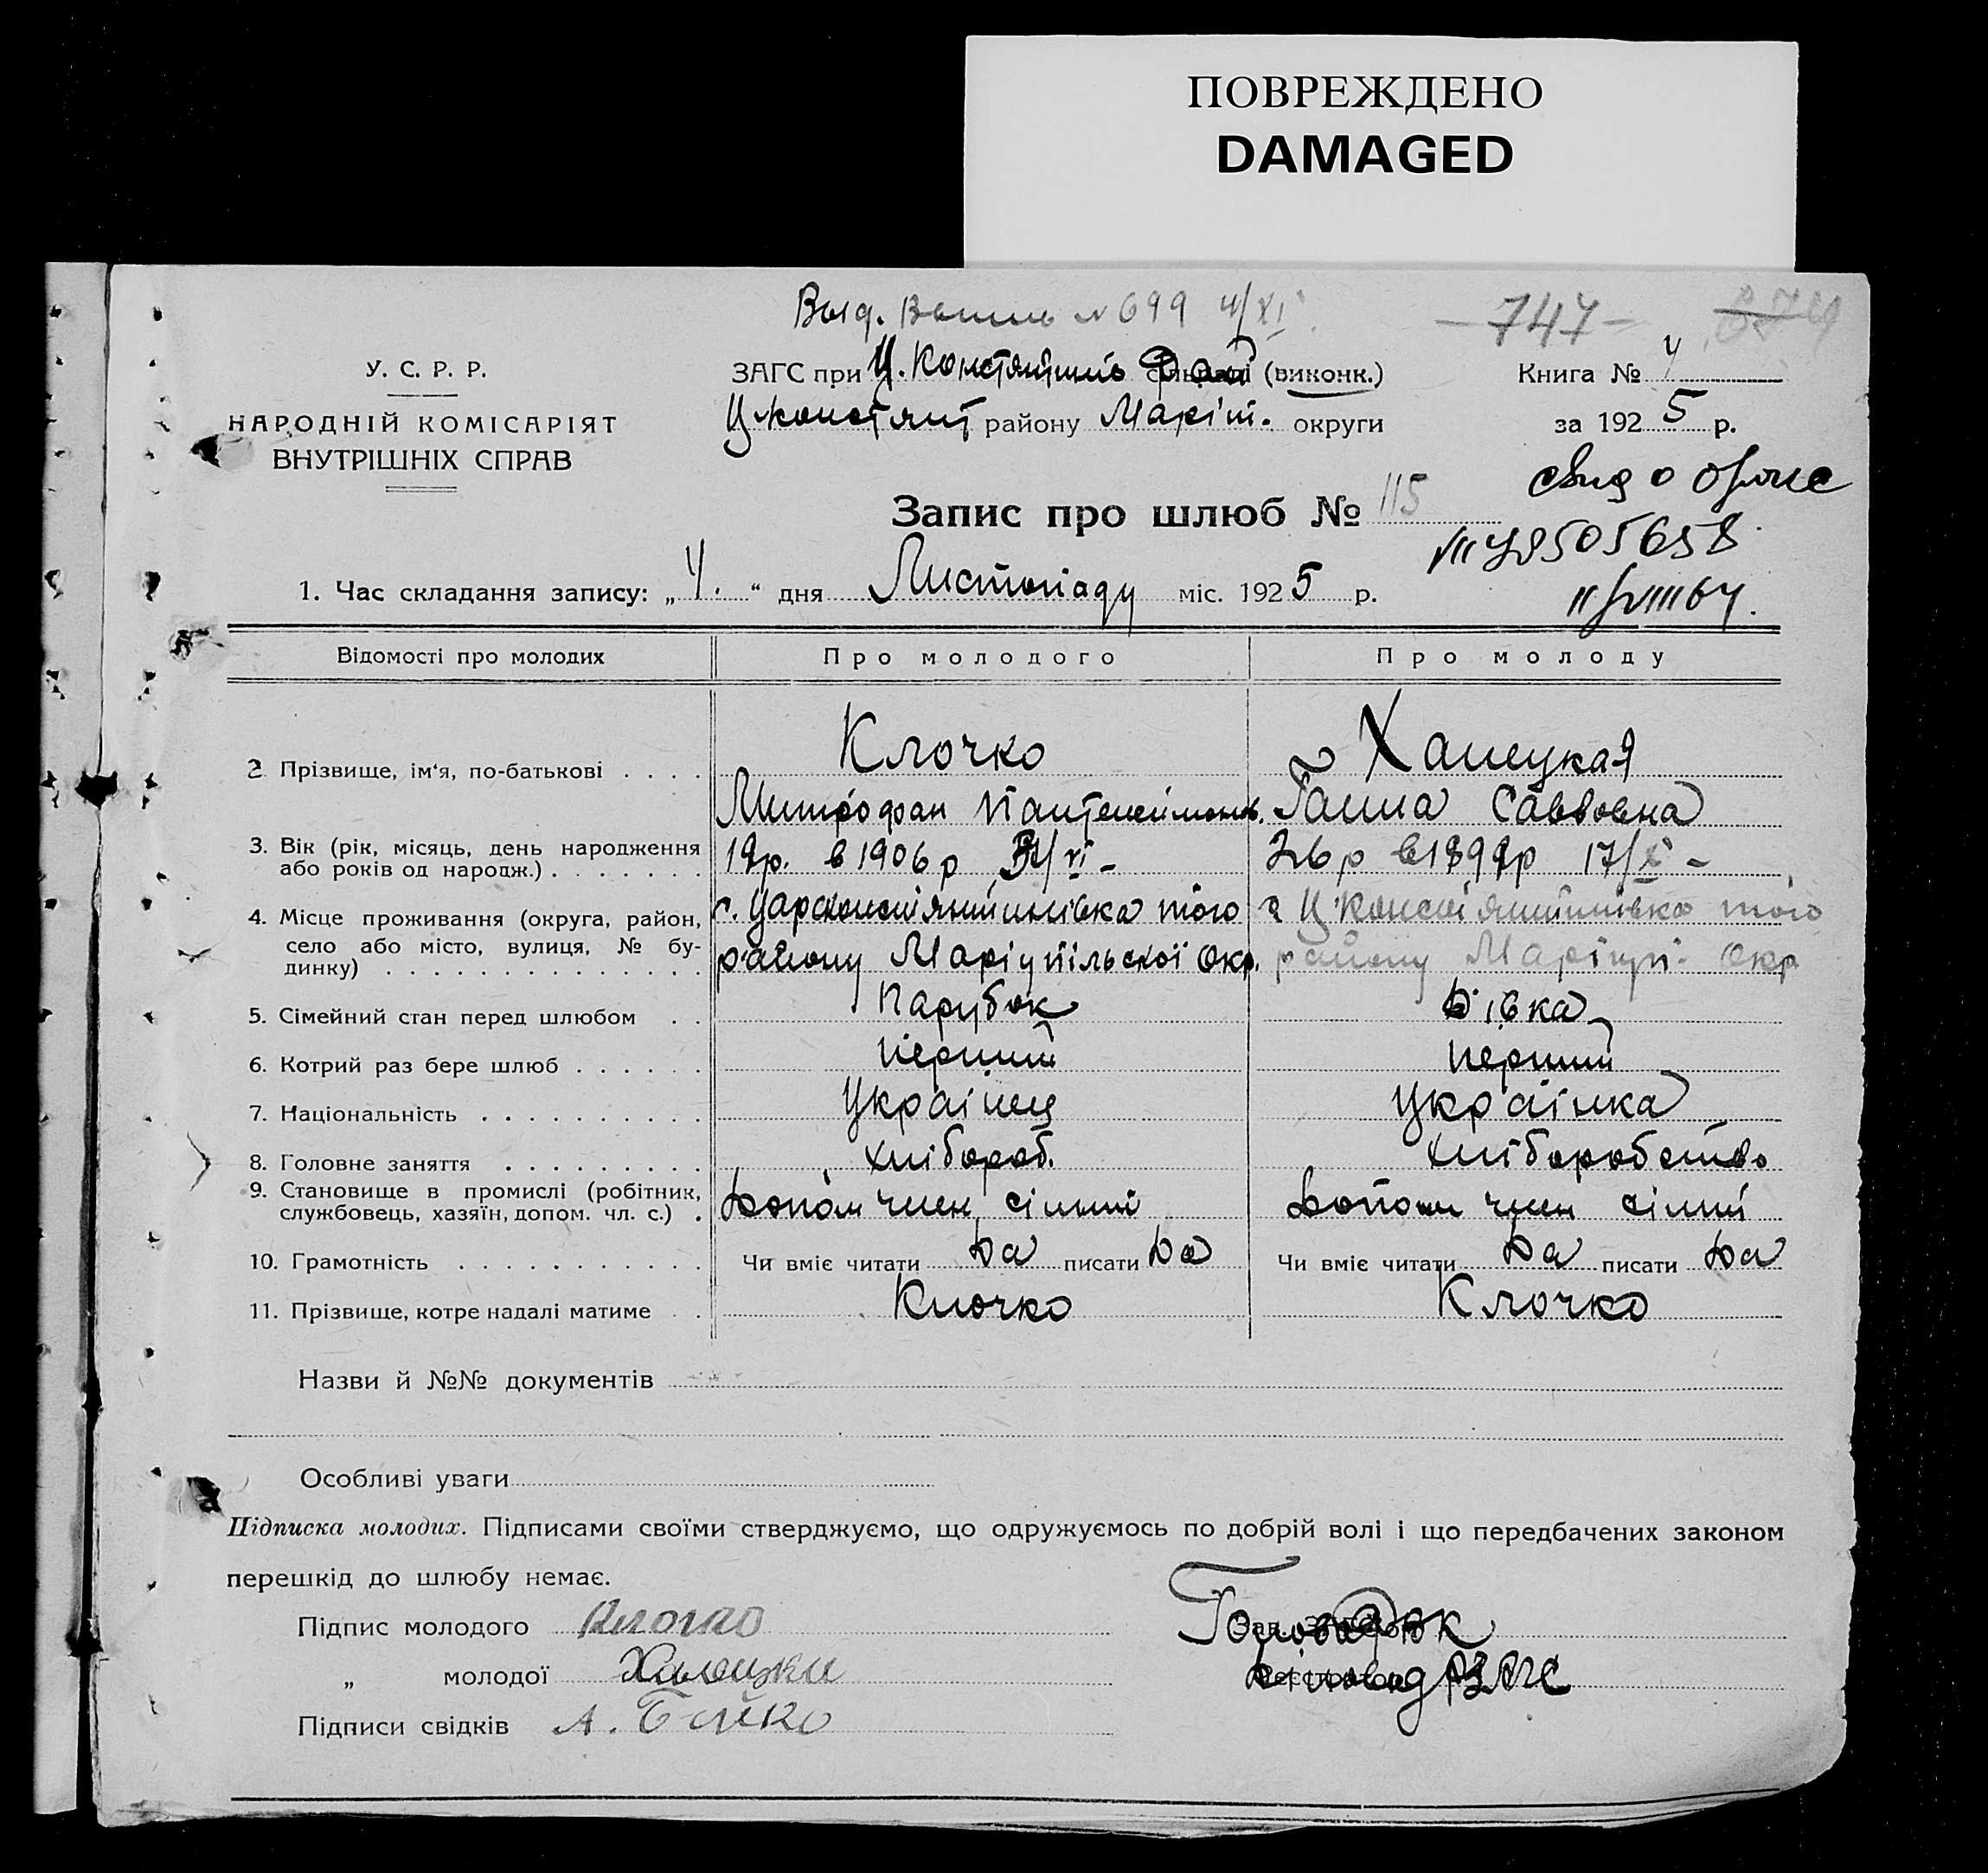 ПОВРЕЖДЕНО
DAMAGED
Выд. № 699 4/XI
—747—
У. С. Р. Р.
НАРОДНІЙ КОМІСАРІЯТ
ВНУТРІШНІХ СПРАВ
ЗАГС при Ц. Констянтинів (виконк.)
Ц констянт району Маріп. округи
Книга № 4
за 1925 р.
Запис про шлюб № 115
свид о
1. Час складання запису: „4.“ дня Листопаду міс. 1925 р.
Відомості про молодих
Про молодого
Про молоду
2. Прізвище, ім'я, по-батькові . . . .
Клочко
Митрофан Пантелеймонов.
Ханецкая
Ганна Саввовна
3. Вік (рік, місяць, день народження або років од народж.) . . . . . . .
19р. в 1906 р
26 р в 1899р 17/X –
4. Місце проживання (округа, район, село або місто, вулиця, № будинку) . . . . . . . . . . . . . . .
с. Царсконстянтинівка того
району Маріупільскої Окр.
с Ц Констянтинівка того
району Маріуп. Окр
5. Сімейний стан перед шлюбом . .
Парубок
Дівка
6. Котрий раз бере шлюб . . . . . .
перший
перший
7. Національність . . . . . . . . . .
Українец
Українка
8. Головне заняття . . . . . . . . .
хлібороб.
хліборобство
9. Становище в промислі (робітник, службовець, хазяїн, допом. чл. с.) .
Допом член сімьї
Допом член сімьї
10. Грамотність . . . . . . . . . . .
Чи вміє читати Да писати Да
Чи вміє читати Да писати Да
11. Прізвище, котре надалі матиме . .
Клочко
Клочко
Назви й №№ документів
Особливі уваги
Підписка молодих. Підписами своїми стверджуємо, що одружуємось по добрій волі і що передбачених законом
перешкід до шлюбу немає.
Підпис молодого Клочко
„ молодої Ханецки
Підписи свідків А. Бойко
Голова РВК
Діловод ЗАГС